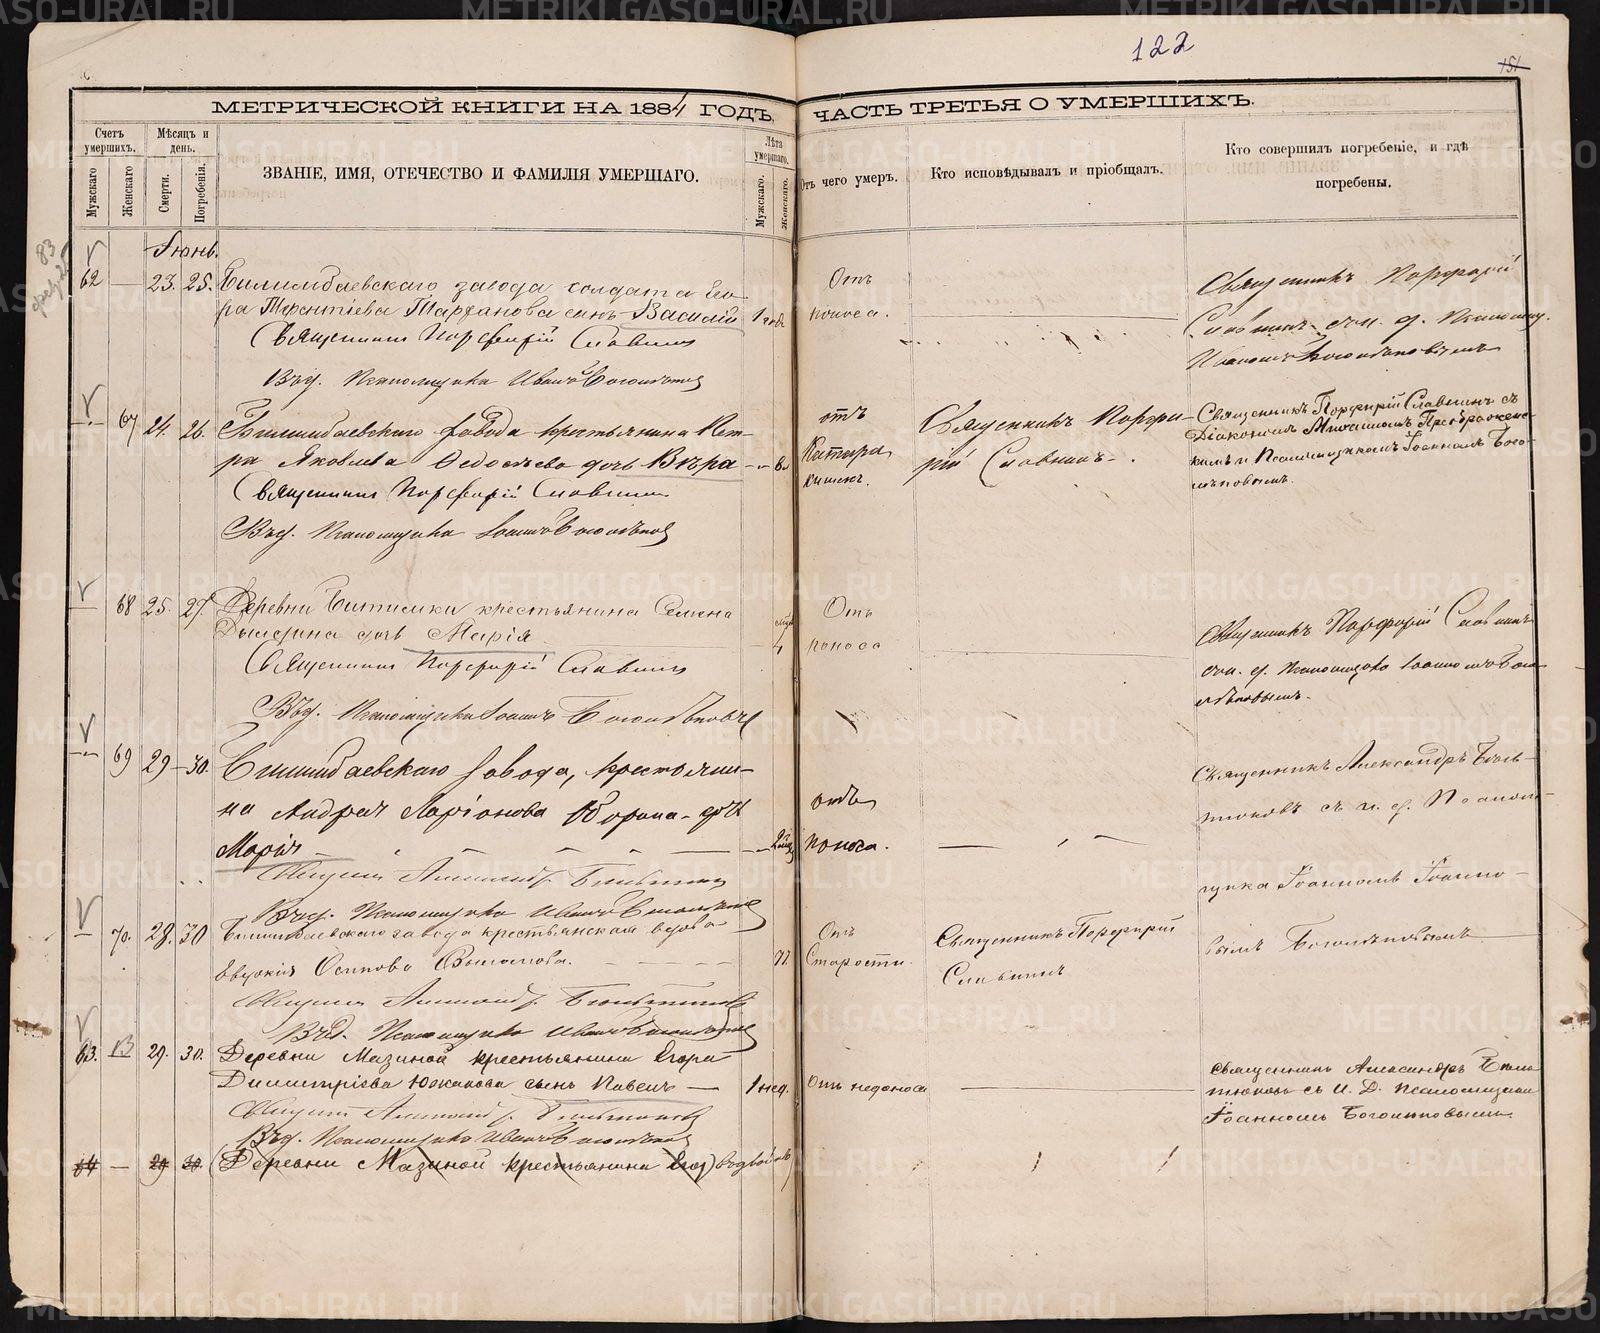 122
151
МЕТРИЧЕСКОЙ КНИГИ НА 1884 ГОДЪ,
ЧАСТЬ ТРЕТЬЯ О УМЕРШИХЪ.
Счетъ умершихъ.
Мужскаго
Женскаго
Мѣсяцъ и день.
Смерти.
Погребенія.
ЗВАНІЕ, ИМЯ, ОТЕЧЕСТВО И ФАМИЛІЯ УМЕРШАГО.
Лѣта умершаго.
Мужскаго.
Женскаго.
Отъ чего умеръ.
Кто исповѣдывалъ и пріобщалъ.
Кто совершилъ погребеніе, и гдѣ
погребены.
83
Іюнь.
62 — 23. 25. Билимбаевскаго завода солдата Его-
ра Терентіева сынъ Василій 1 годъ
Священникъ Порфирій Славнинъ
Въ д. Псаломщика Иванъ Боголѣповъ
Отъ
поноса.
Священникъ Порфирій
Славнинъ съ и. д. Псаломщ.
Иваномъ Боголѣповымъ
67 24. 26. Билимбаевскаго завода крестьянина Пет-
ра Яковлева Ѳедосѣева дочь Вѣра
Священникъ Порфирій Славнинъ
Въ д. Псаломщика Іоаннъ Боголѣповъ
отъ
Катара
кишекъ.
Священникъ Порфи-
рій Славнинъ.
Священникъ Порфирій Славнинъ съ
Діакономъ Преображенс-
кимъ и Псаломщикомъ Іоанномъ Бого-
лѣповымъ.
68 25. 27. Деревни Битимки крестьянина Семена
дочь Марія 4
Священникъ Порфирій Славнинъ
Въ д. Псаломщика Іоаннъ Боголѣповъ
Отъ
поноса
Священникъ Порфирій Славнинъ
съ и. д. Псаломщика Іоанномъ Бого-
лѣповымъ.
69 29 — 30. Билимбаевскаго завода, крестьяни-
на Андрея Ларіонова дочь
Марія
Священникъ Александръ
Въ д. Псаломщика Иванъ Боголѣповъ
отъ
поноса.
Священникъ Александръ
съ и. д. Псалом-
щика Іоанномъ Іоанно-
вымъ Боголѣповымъ
70. 28. 30 Билимбаевскаго завода крестьянская вдова
Евдокія Осипова 77.
Священникъ Александръ
Въ д. Псаломщика Иванъ Боголѣповъ
Отъ
Старости.
Священникъ Порфирій
Славнинъ
63. 13 29. 30. Деревни Мазиной крестьянина Егора
Димитріева Южакова сынъ Павелъ — 1 нед.
Священникъ Александръ
Въ д. Псаломщика Иванъ Боголѣповъ
Отъ недоноса
Священникъ Александръ
съ И. Д. Псаломщика
Іоанномъ Боголѣповымъ
64 — 29 30. (Деревни Мазиной крестьянина Егор)
METRIKI.GASO-URAL.RU